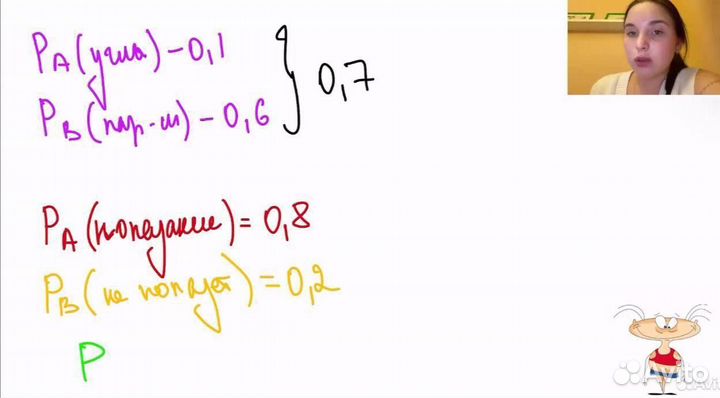 P_A (угла) – 0,1
P_B (пар-м) – 0,6
0,7
P_A (попадание) = 0,8
P_B (не попадёт) = 0,2
P
Avito